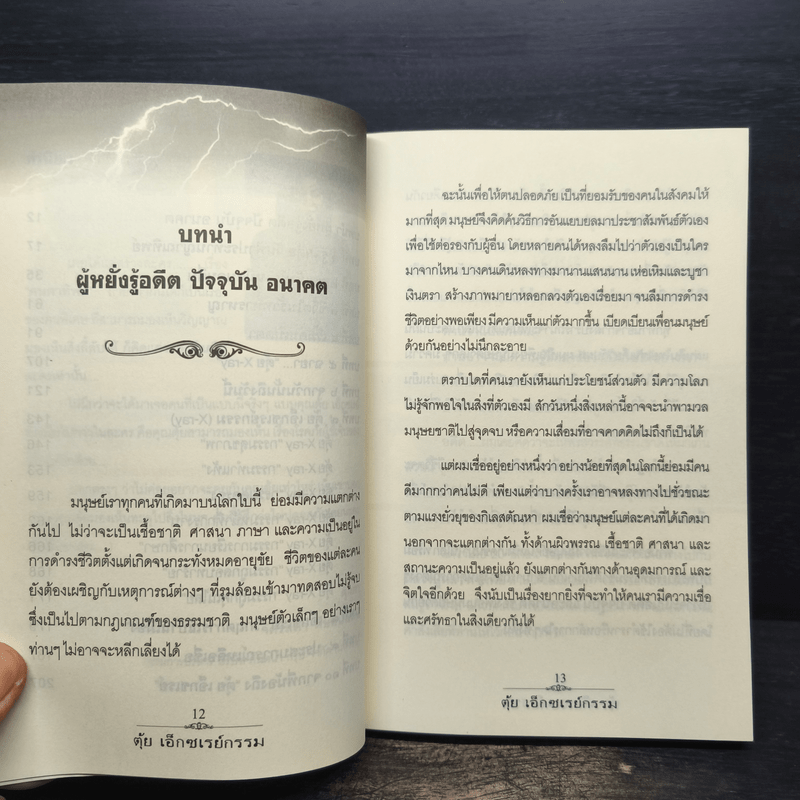 บทนำ
ผู้หยั่งรู้อดีต ปัจจุบัน อนาคต
มนุษย์เราทุกคนที่เกิดมาบนโลกใบนี้ ย่อมมีความแตกต่าง
กันไป ไม่ว่าจะเป็นเชื้อชาติ ศาสนา ภาษา และความเป็นอยู่ใน
การดำรงชีวิตตั้งแต่เกิดจนกระทั่งหมดอายุขัย ชีวิตของแต่ละคน
ยังต้องเผชิญกับเหตุการณ์ต่างๆ ที่รุมล้อมเข้ามาทดสอบไม่รู้จบ
ซึ่งเป็นไปตามกฎเกณฑ์ของธรรมชาติ มนุษย์ตัวเล็กๆ อย่างเราๆ
ท่านๆ ไม่อาจจะหลีกเลี่ยงได้
12
ตุ้ย เอ็กซเรย์กรรม
ฉะนั้นเพื่อให้ตนปลอดภัย เป็นที่ยอมรับของคนในสังคมให้
มากที่สุด มนุษย์จึงคิดค้นวิธีการอันแยบยลมาประชาสัมพันธ์ตัวเอง
เพื่อใช้ต่อรองกับผู้อื่น โดยหลายคนได้หลงลืมไปว่าตัวเองเป็นใคร
มาจากไหน บางคนเดินหลงทางมานานแสนนาน เห่อเหิมและบูชา
เงินตรา สร้างภาพมายาหลอกลวงตัวเองเรื่อยมา จนลืมการดำรง
ชีวิตอย่างพอเพียง มีความเห็นแก่ตัวมากขึ้น เบียดเบียนเพื่อนมนุษย์
ด้วยกันอย่างไม่นึกละอาย
ตราบใดที่คนเรายังเห็นแก่ประโยชน์ส่วนตัว มีความโลภ
ไม่รู้จักพอใจในสิ่งที่ตัวเองมี สักวันหนึ่งสิ่งเหล่านี้อาจจะนำพามวล
มนุษยชาติไปสู่จุดจบ หรือความเสื่อมที่อาจคาดคิดไม่ถึงก็เป็นได้
แต่ผมเชื่ออยู่อย่างหนึ่งว่า อย่างน้อยที่สุดในโลกนี้ย่อมมีคน
ดีมากกว่าคนไม่ดี เพียงแต่ว่าบางครั้งเราอาจหลงทางไปชั่วขณะ
ตามแรงยั่วยุของกิเลสตัณหา ผมเชื่อว่ามนุษย์แต่ละคนที่ได้เกิดมา
นอกจากจะแตกต่างกัน ทั้งด้านผิวพรรณ เชื้อชาติ ศาสนา และ
สถานะความเป็นอยู่แล้ว ยังแตกต่างกันทางด้านอุดมการณ์ และ
จิตใจอีกด้วย จึงนับเป็นเรื่องยากยิ่งที่จะทำให้คนเรามีความเชื่อ
และศรัทธาในสิ่งเดียวกันได้
13
ตุ้ย เอ็กซเรย์กรรม